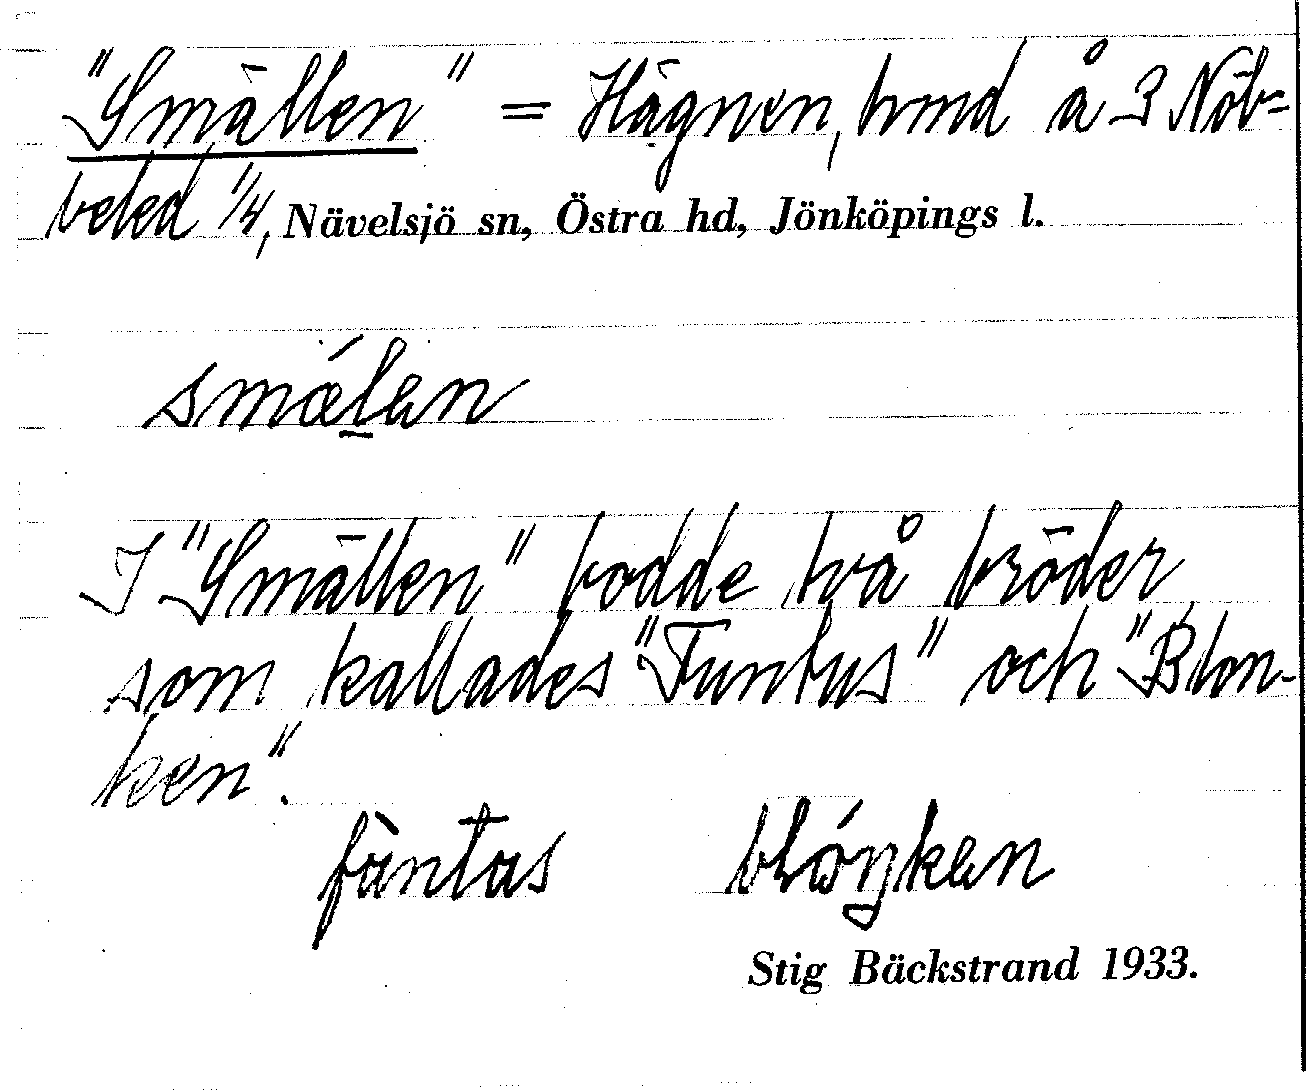 "Smällen" = Hägnen, hmd å 3 Nöb=
beled 1/4, Nävelsjö sn, Östra hd, Jönköpings l.
smǽlan
I "Smällen" bodde två bröder
som kallades "Funtus" och "Blon-
ken".
Stig Bäckstrand 1933.